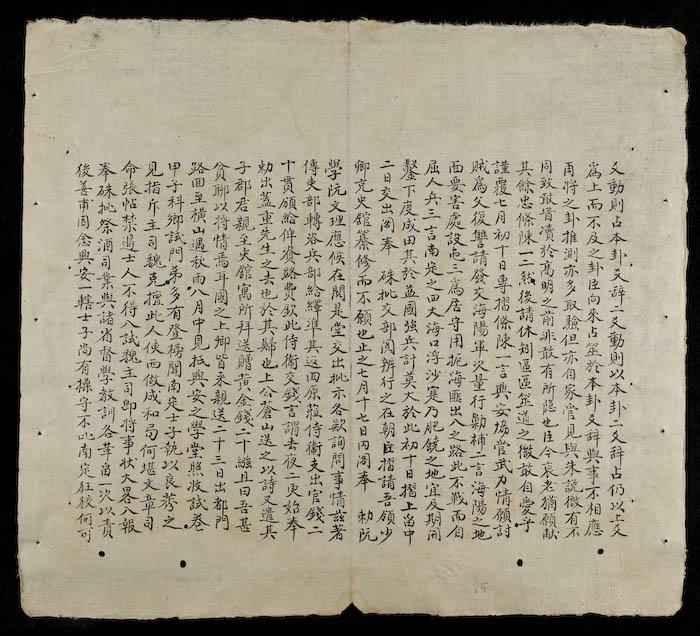 爻動則占本卦爻辭二爻動則以本卦二爻辭占仍以上爻
爲上而不及之卦臣向來占筮於本卦爻辭與事不相應
再將之卦推測亦多取驗但亦自家管見與朱說微有不
同致敢冒瀆於高明之前非敢有所隱也臣今衰老猶願獻
其餘忠條陳二一款後請休到區區筮道之微敢自愛乎
謹覆七月初十日專摺條陳一言興安協管武力情願討
賊爲父復讐請發交海陽軍次量行勦補二言海陽之地
西要害處設屯三爲居守用扼海匪出入之路此不戰而自
屈人兵三言南定之四大海口浮沙寔乃肥饒之地宜及期開
鑿下度成田其於益國強兵計莫大於此初十日摺上留中
二日交出閣奉 硃批交部閱辨行之在朝臣摺請吾領少
卿充史舘纂修而不願也止之七月十七日內閣奉 勅阮
學阮文理應候在閱是堂交出批示各款詢問事情茲著
傳吏部轉咨兵部給繹準其返回原蒞侍衛支出官錢二
十貫頒給俾資路費欽此侍衛交錢言謂去夜二更始奉
勅出蓋重先生之去也於其歸也上公蒼山送之以詩又遣其
子郡君親至史舘寓所拜送贈黃金錢二十繦且曰吾甚
貧聊以將情焉耳國之上卿皆來親送二十三日出都門
路回至橫山遇秋雨八月中見抵興安之學堂照收試卷
甲子科鄉試門弟多有登稱聞南定士子執以良莠之
見指斥主司魏克擅此人使西做成和局何堪文章司
命張帖禁遏士人不得入試魏主司卽將事狀大畧入報
奉硃批祭酒司業與諸省督學教訓各輩當一次以責
後善甫因念興安一轄士子尚有操守不比南定狂狡何可
85